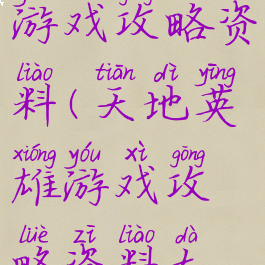 游戏攻略资
liào tiān dì yīng
料(天地英
xióng yóu xì gōng
雄游戏攻
lüè zī liào dà
略资料大